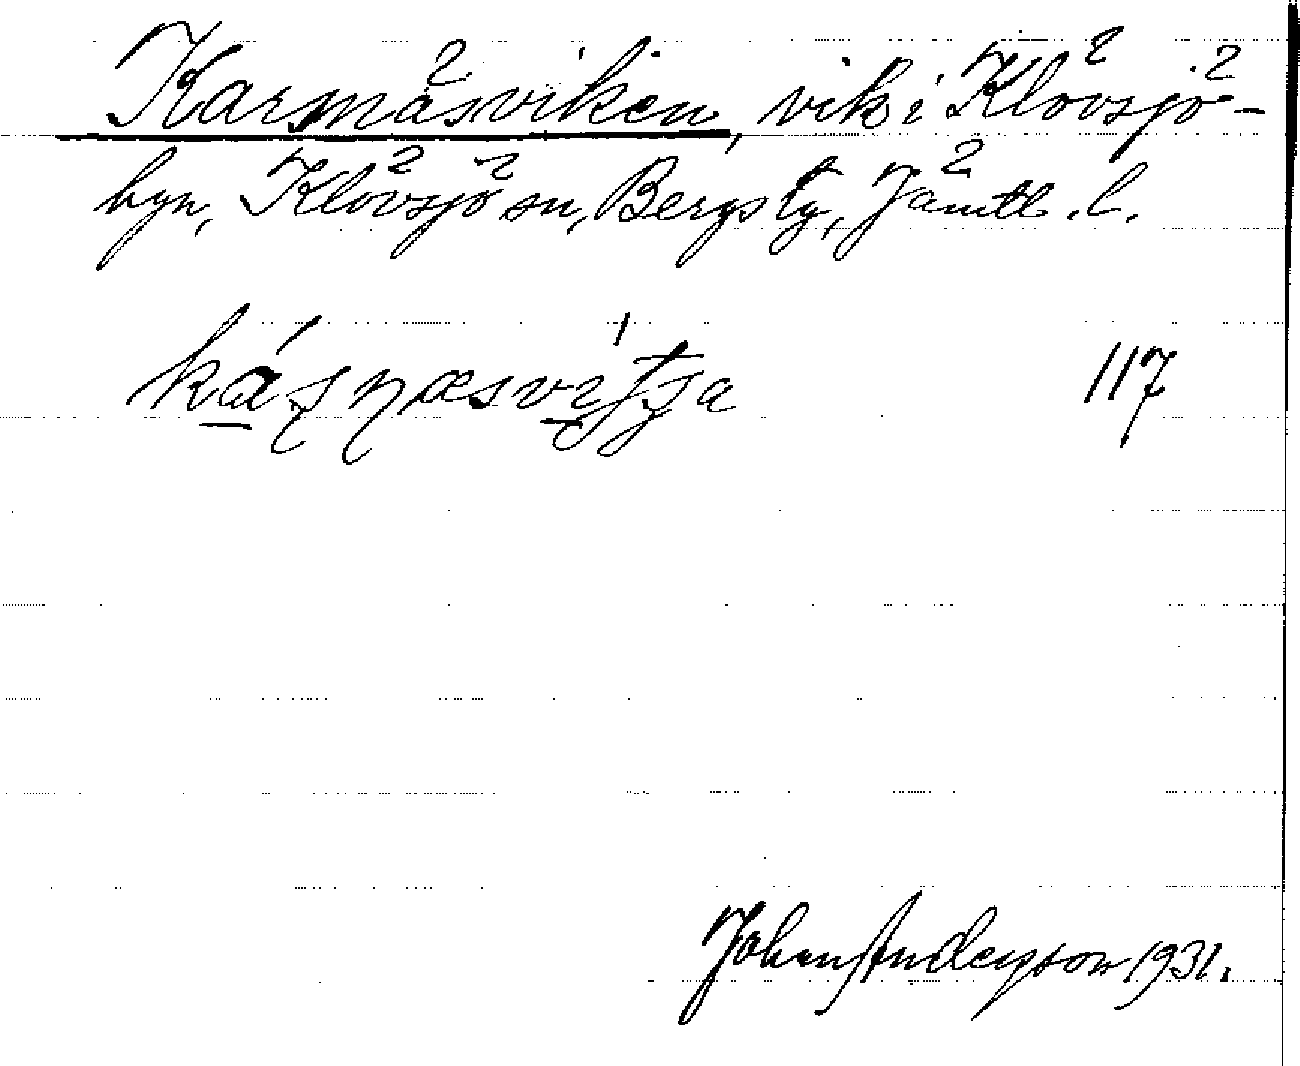 Karmäsviken, vik i Klövsjö-
byn, Klövsjö sn, Bergs tg, Jämtl. l.
117
Johan Anderson 1931.